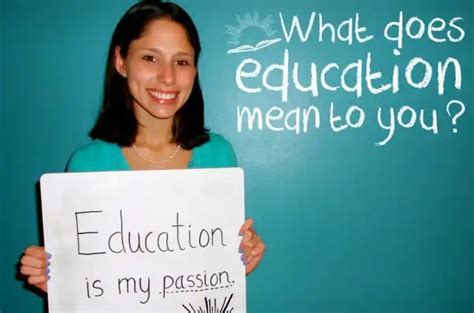 What does
education
mean to you?
Education
is my passion.